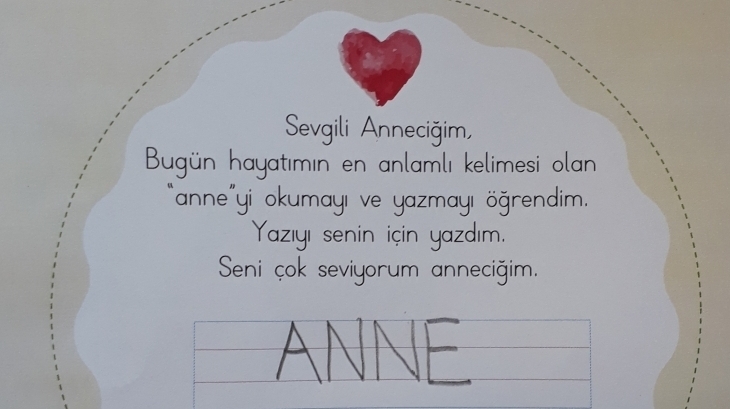 Sevgili Anneciğim,
Bugün hayatımın en anlamlı kelimesi olan
"anne"yi okumayı ve yazmayı öğrendim.
Yazıyı senin için yazdım.
Seni çok seviyorum anneciğim.
ANNE